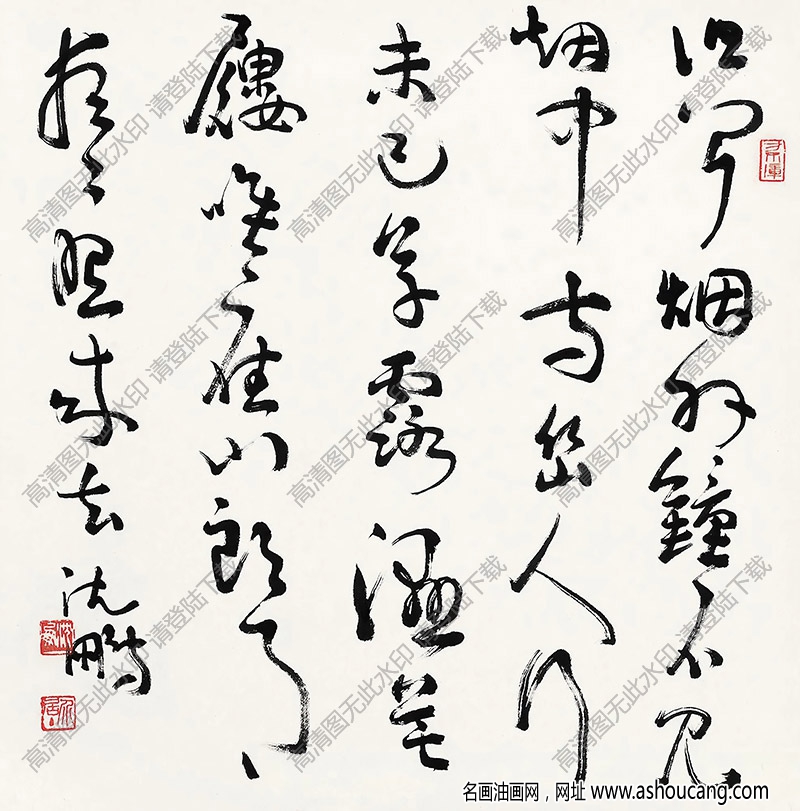 但闻烟外鐘不见
烟中寺幽人行
未已草露湿芒
屦唯应山头月
夜〻照来去 沈鹏
高清图无此水印 请登陆下载
高清图无此水印 请登陆下载
高清图无此水印 请登陆下载
高清图无此水印 请登陆下载
高清图无此水印 请登陆下载
高清图无此水印 请登陆下载
高清图无此水印 请登陆下载
高清图无此水印 请登陆下载
高清图无此水印 请登陆下载
名画油画网，网址 www.ashoucang.com